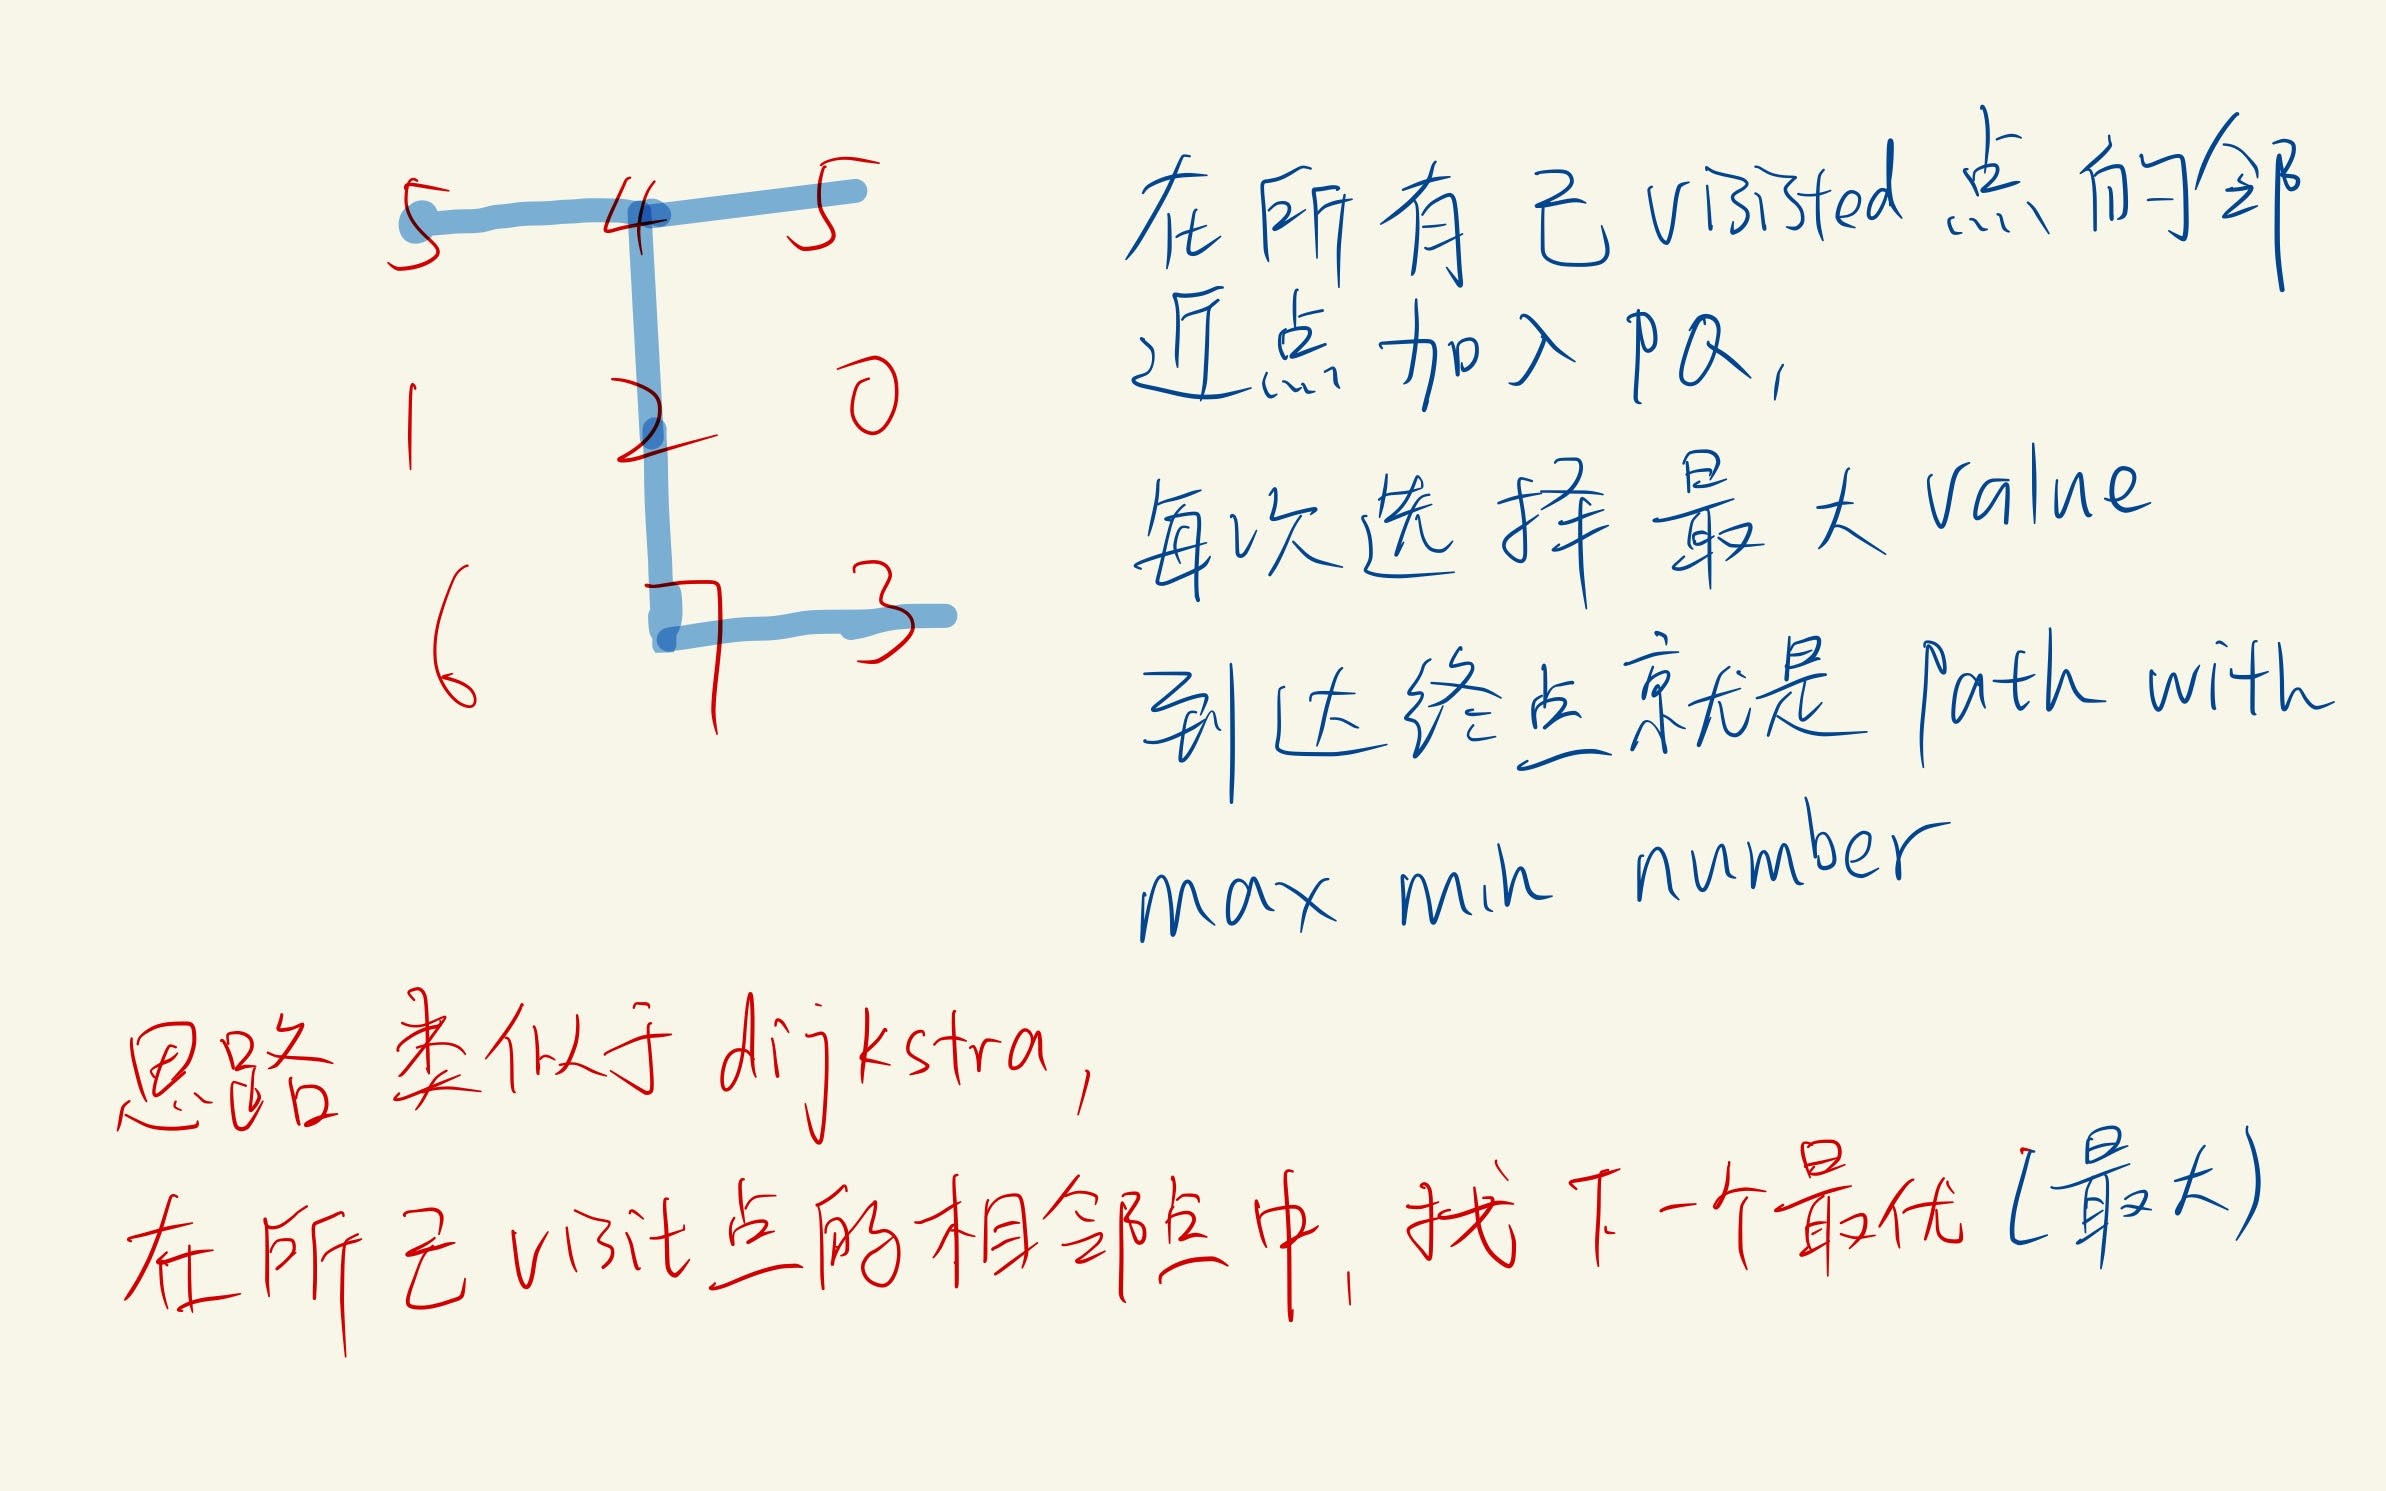 5 4 5
1 2 0
6 7 3
在所有已visited点的邻
近点加入PQ,
每次选择最大value
到达终点就是path with
max min number
思路类似于dijkstra,
在所已visit点的相邻点中,找下一个最优(最大)